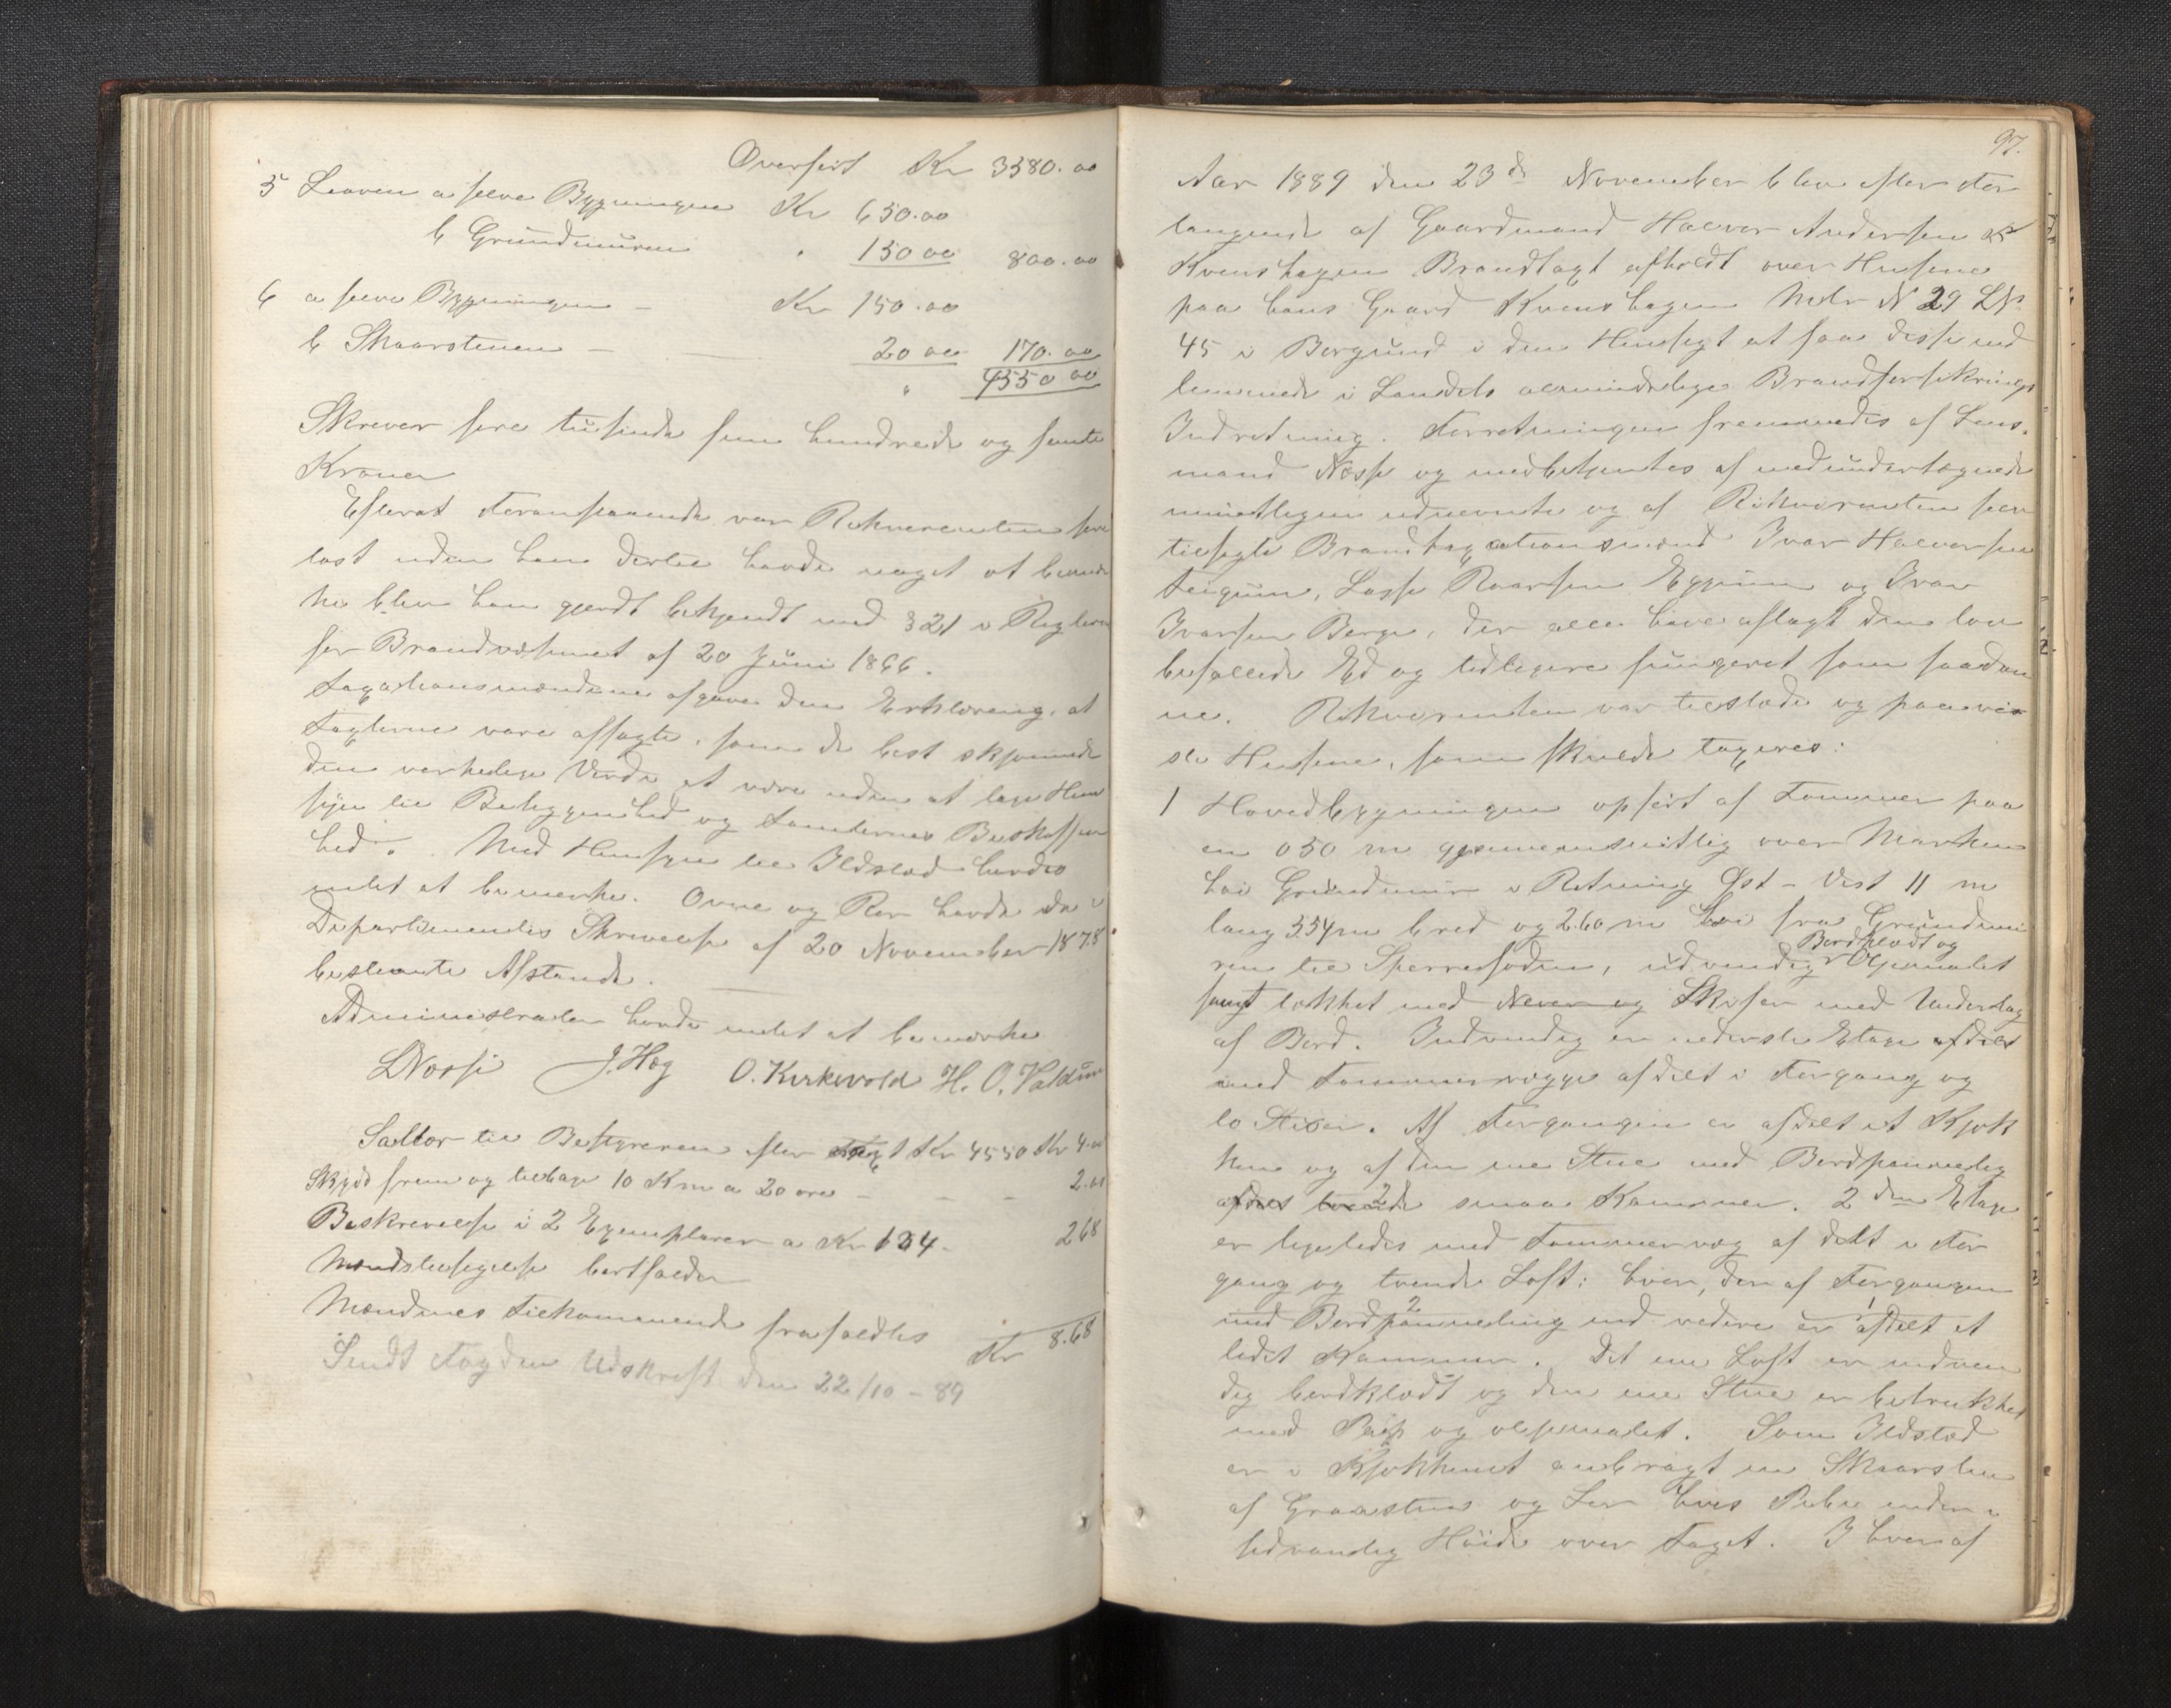 Overført Kr 3580.00
5 Laaven a selve Bygningen Kr 650.00
b Grundmuren " 150 00 800.00
6 a selve Bygningen - Kr 150.00
b Skaarstenen - 20 00 170.00
" 4550 00
Skriver fire tusinde fem hundrede og femti
Kroner
Efterat Foranstaaende var Rekvirenten fore
læst uden han dertil havde noget at bemær
ke blev han gjordt bekjendt med § 21 i Reglem
for Brandvæsenet af 20 Juni 1866.
Taxationsmændene afgave den Erklæring, at
Taxterne vare afsagte, som de best skjønnede
den verkelige Verdi at være uden at tage Hen
syn til Beliggenhed og Tomternes Beskaffen
hed. Med Hensyn til Ildsted havdes
intet at bemerke. Ovne og Rør havde de i
Departementets Skrivelse af 20 November 1878
bestemte Afstande.
Administrator havde intet at bemærke
LNæsse J. Hæg O. Kirkevold H. O. Voldum
Sallær til Bestyreren efter Taxt Kr 4550 Kr 4.00
Skyds frem og tilbage 10 Km a 20 øre - - - 2.00
Beskrivelse i 2 Exemplarer a Kr 1 34 - 2 68
Mændstilsigelse bortfalder
Mændenes Tilkommende frafaldtes
Kr 8.68
Sendt Fogden Udskrift den 22/10 - 89
97.
Aar 1889 den 23de November blev efter For
langende af Gaardmand Halvor Andersen
Kvenshagen Brandtaxt afholdt over Husene
paa hans Gaard Kvenshagen Matr N 29 LN
45 i Borgund i den Hensigt at faa disse ind
lemmede i Landets almindelige Brandforsikrings
Indretning. Forretningen fremmedes af Lens-
mand Næsse og medbetjentes af medundertegnede
mindeligen udnævnte og af Rekvirenten selv
tilsagte Brandtaxationsmænd Ivar Halvorsen
Teigum, Lasse Roarsen Eggum og Ivar
Ivarsen Berge, der alle have aflagt den lov
befalede Ed og tidligere fungeret som saadan
ne. Rekvirenten var tilstede og paavi
ste Husene, som skulde taxeres:
1 Hovedbygningen opført af Tømmer paa
en 0 50 m gjennemsnitlig over Marken
høi Grundmur i Retning Øst - Vest 11 m
lang 5.54 m bred og 2.60 m høi fra Grundmu
ren til Sperrefoden, udvendig Bordklædt og Oljemalet
samt tækket med Never og Skifer med Underlag
af Bord. Indvendig er nederste Etage afdelt
med Tømmervægge afdelt i Forgang og
to Stuer. Af Forgangen er afdelt et Kjøk
ken og af den ene Stue med Bordpanneling
afdelt tvende 2de smaa Kammer. 2den Etage
er ligeledes med Tømmervæg afdelt i For
gang og tvende Loft: hver, der af Forgangen
med Bordpanneling 2 ned videre er 1 afdelt et
lidet Kammer. Det ene Loft er indven
dig bordklædt og den ene Stue er betrukket
med Pap og oljemalet. Som Ildsted
er i Kjøkkenet anbragt en Skaarsten
af Graasten og Ler hvis Pibe ender i
sedvanlig Høide over Taget. I hver af